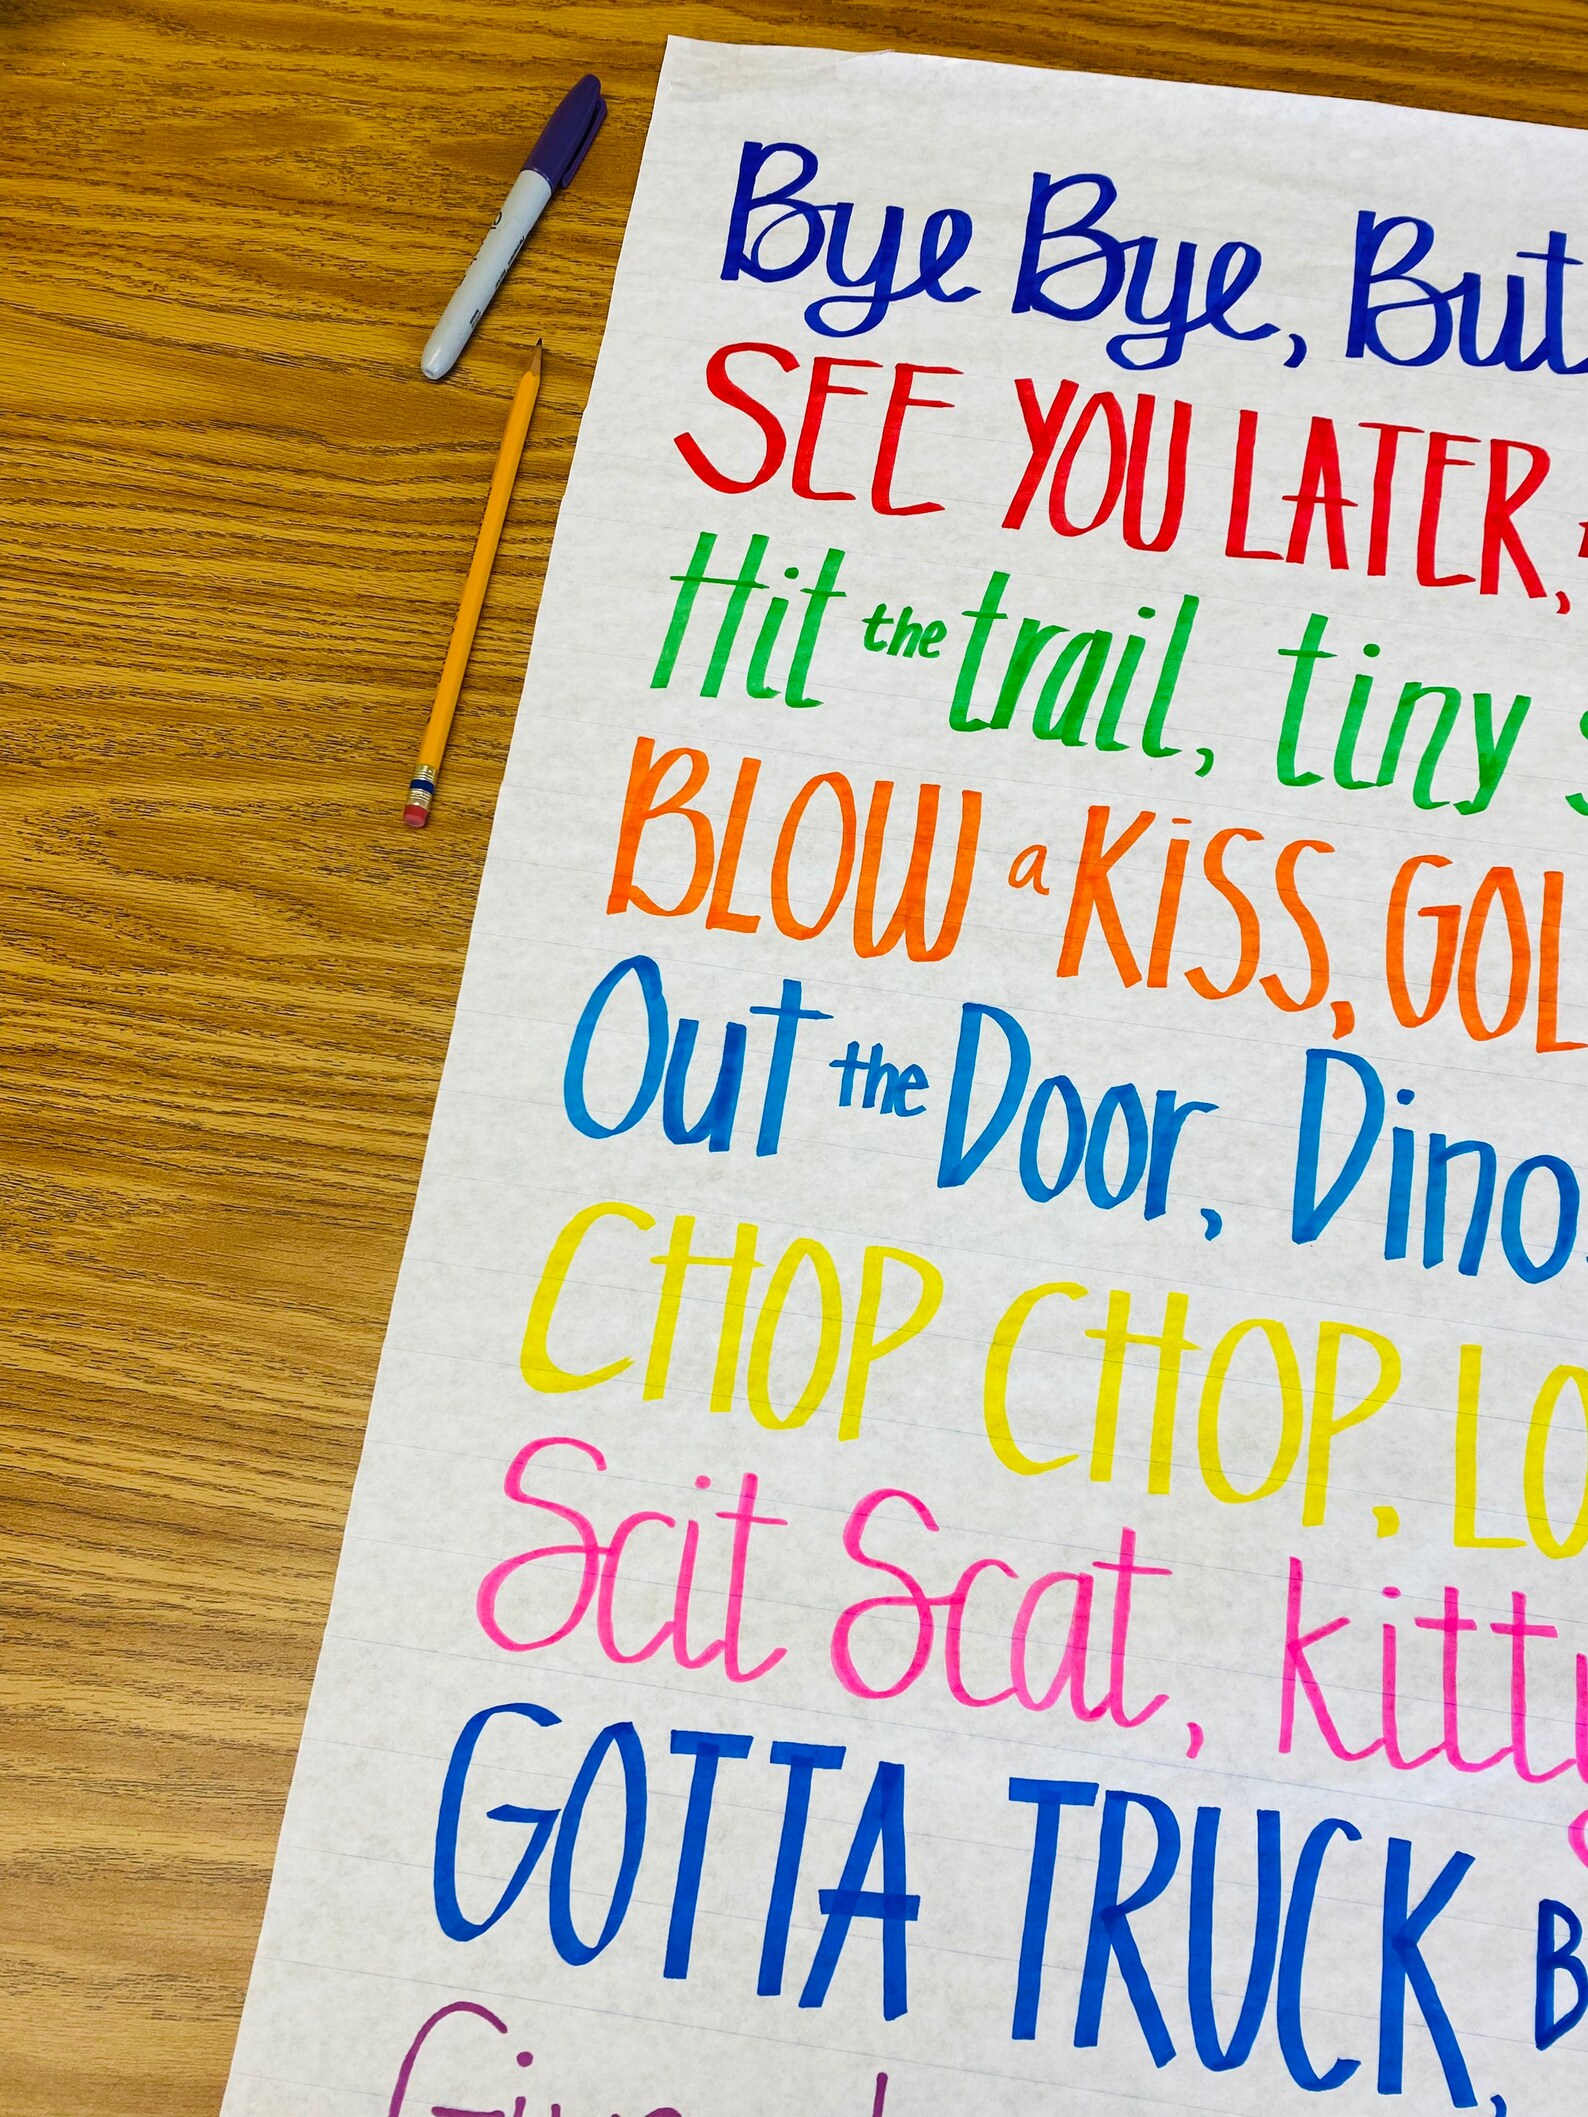 Bye Bye, But
SEE YOU LATER,
Hit the trail, tiny s
BLOW a KiSS, GOL
Out the Door, Dino
CHOP CHOP, LO
Scit Scat, kitty
GOTTA TRUCK, B